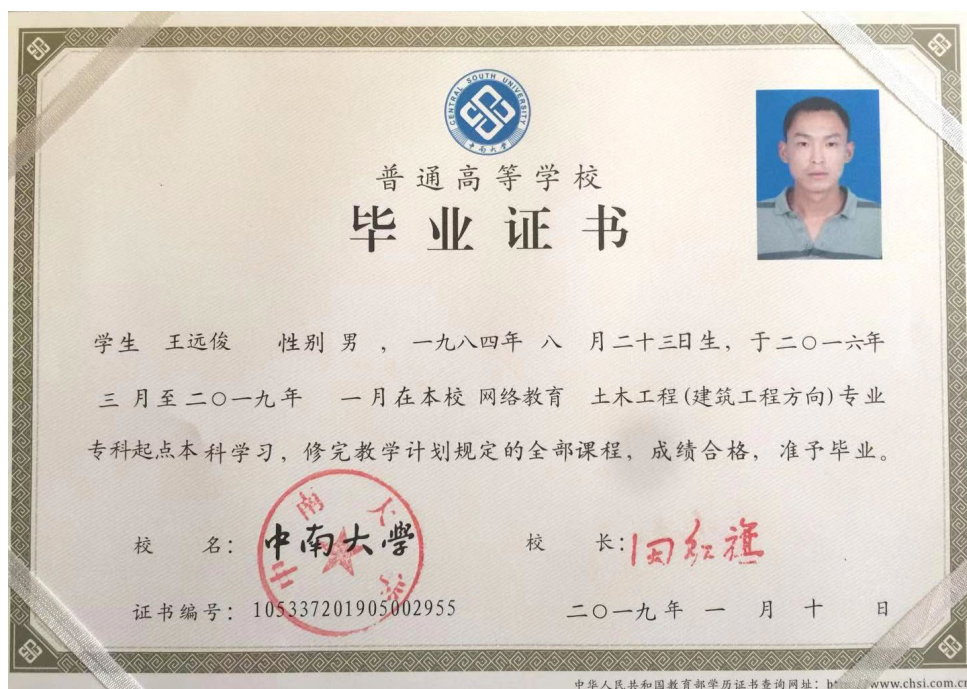 CENTRAL SOUTH UNIVERSITY
中南大学
普通高等学校
毕业证书
学生 王远俊 性别 男 ，一九八四年 八 月二十三日生，于二○一六年
三 月至二○一九年 一月在本校 网络教育 土木工程(建筑工程方向)专业
专科起点本科学习，修完教学计划规定的全部课程，成绩合格，准予毕业。
校 名：中南大学
中南大学
校 长：田红旗
证书编号：105337201905002955
二○一九年 一 月 十 日
中华人民共和国教育部学历证书查询网址：www.chsi.com.cn